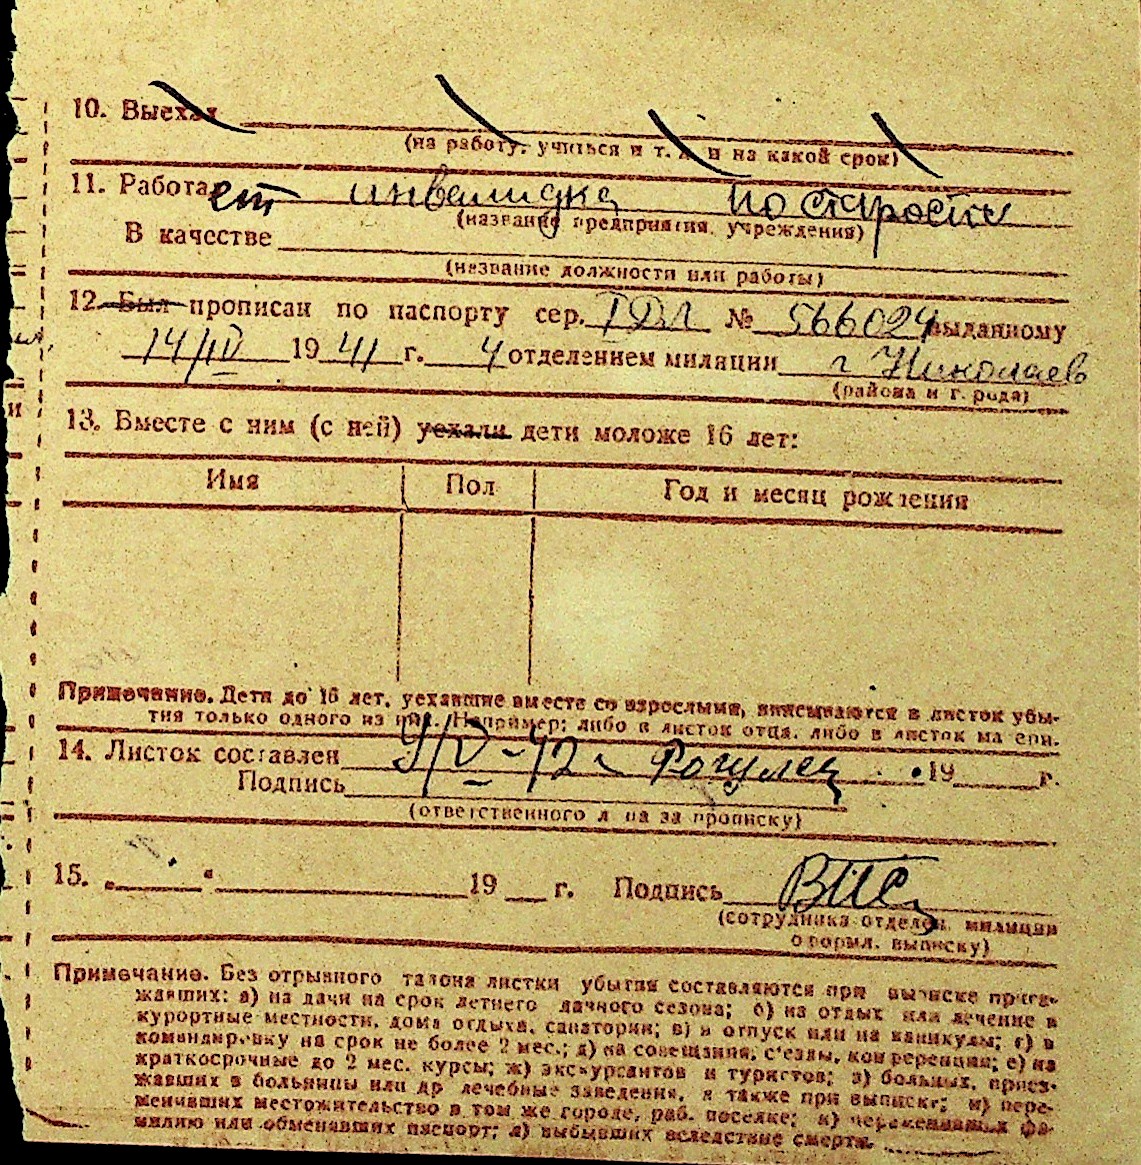 10. Выехал
(на работу, учиться и т. д. и на какой срок)
11. Работает инвалидка по старости
(название предприятия, учреждения)
В качестве
(название должности или работы)
12. Был прописан по паспорту сер. № 566024 выданному
14/IV 1941 г. 4 отделением милиции г Николаев
(района и города)
13. Вместе с ним (с ней) уехали дети моложе 16 лет:
Имя Пол Год и месяц рождения
Примечание. Дети до 16 лет, уехавшие вместе со взрослыми, вписываются в листок убы-
тия только одного из них. Например: либо в листок отца, либо в листок матери.
14. Листок составлен 19 г.
Подпись
(ответственного лица за прописку)
15. „ “ 19 г. Подпись
(сотрудника отделен. милиции
оформл. выписку)
Примечание. Без отрывного талона листки убытия составляются при выписке приез-
жавших: а) на дачи на срок летнего дачного сезона; б) на отдых или лечение в
курортные местности, дома отдыха, санатории; в) в отпуск или на каникулы; г) в
командировку на срок не более 2 мес.; д) на совещания, с'езды, конференции; е) на
краткосрочные до 2 мес. курсы; ж) экскурсантов и туристов; з) больных, приез-
жавших в больницы или др лечебные заведения, а также при выписке; и) пере-
менивших местожительство в том же городе, раб. поселке; к) переменивших фа-
милию или обменявших паспорт; л) выбывших вследствие смерти.